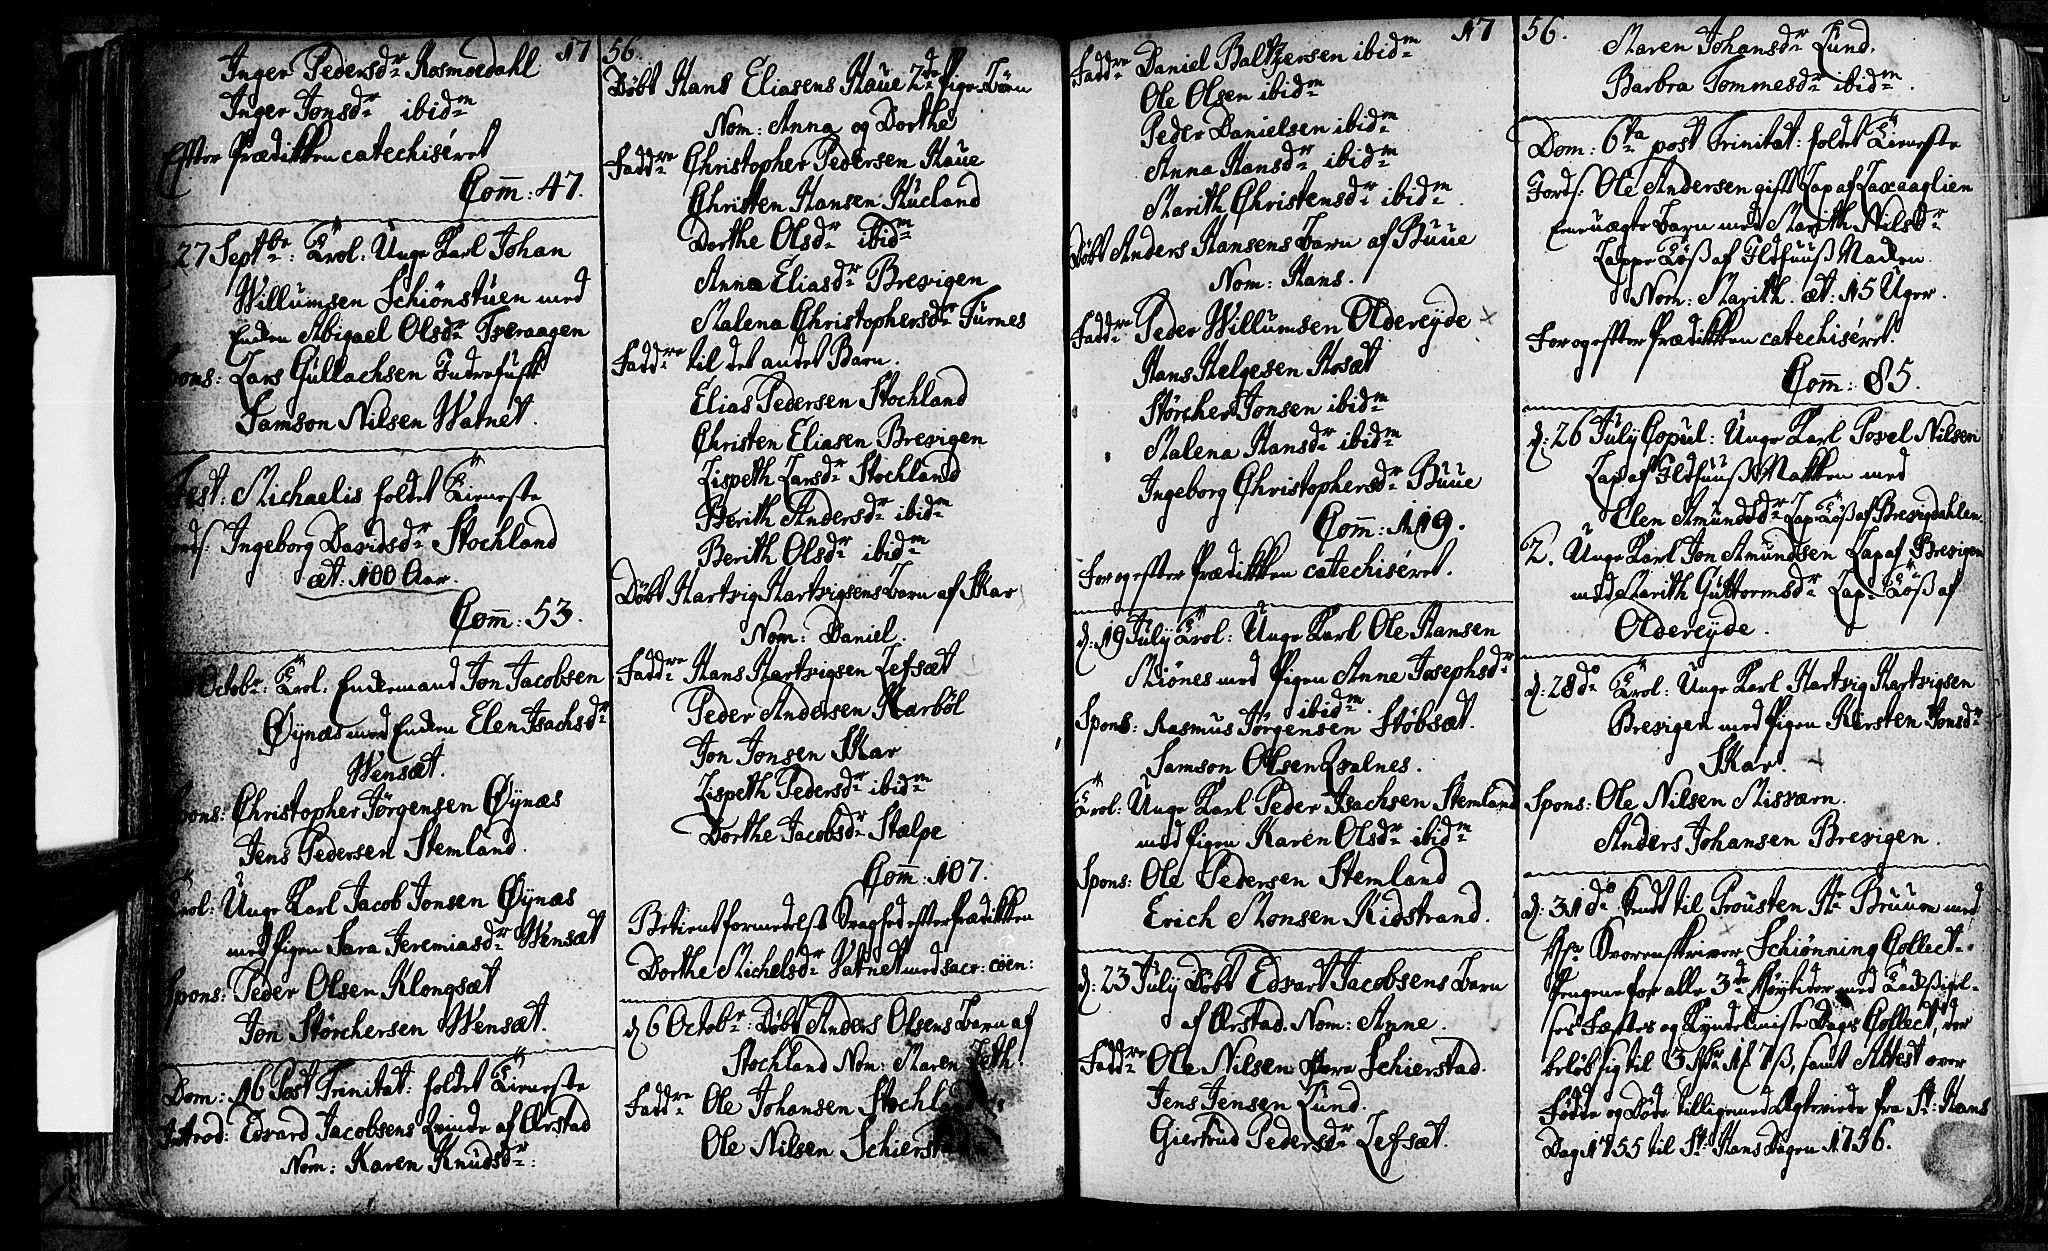 17 56.
Inger Pedersdr Rosmoedahl
Inger Jonsdr ibidm
Efter Prædikken catechiséret
Com̄: 47.
27 Septbr: Trol: Unge Karl Johan
Willumsen Schiönstuen med
Enken Abigael Olsdr Tveraagen
Spons: Lars Gullachsen Inderhust
Samson Nilsen Watnet.
Fest: Michaelis holdet Tieneste
Jords: Ingeborg Davidsdr Stochland
æt: 100 Aar.
Com̄: 53.
Octobr: Trol: Enkemand Jon Jacobsen
Øynæs med Enken Elen Isachsdr
Wensæt.
Spons: Christopher Jørgensen Øynæs
Jens Pedersen Stemland.
Trol: Unge Karl Jacob Jonsen Øynæs
med Pigen Sara Jeremiasdr Wensæt
Spons: Peder Olsen Klongsæt
Jon Störchersen Wensæt.
Dom: 16 Post Trinitat: holdet Tieneste
Introd: Edvard Jacobsens Qvinde af Ørstad
Nom: Karen Knudsdr:
Döbt Hans Eliasens Haue 2de Pige-Børn
Nom: Anna og Dorthe
Faddre Christopher Pedersen Haue
Christen Hansen Hucland
Dorthe Olsdr ibidm
Anna Eliasdr Brevigen
Malena Christophersdr Furnes
Faddre til det andet Barn.
Elias Pedersen Stochland
Christen Eliasen Brevigen
Lispeth Larsdr Stochland
Berith Andersdr ibidm
Berith Olsdr ibidm
Döbt Hartvig Hartvigsens Barn af Skar
Nom: Daniel.
Faddre Hans Hartvigsen Lefsæt
Peder Andersen Karböl
Jon Jonsen Skar
Lispeth Pedersdr ibidm
Dorthe Jacobsdr Stælpe
Com̄: 107.
Betient formedelst Svaghed efter Prædikken
Dorthe Michelsdr Vatnet med sacr: cöen:
d 6 Octobr: Döbt Anders Olsens Barn af
Stochland Nom: Maren Zeth.
Faddre Ole Johansen Stochland
Ole Nilsen Schierstad
17 56.
Faddre Daniel Baltzersen ibidm
Ole Olsen ibidm
Peder Danielsen ibidm
Anna Hansdr ibidm
Marith Christensdr ibidm.
Döbt Anders Hansens Barn af Buue
Nom: Hans.
Faddre Peder Willumsen Oldereyde
Hans Helgesen Hosæt
Störcher Jonsen ibidm
Malena Hansdr ibidm
Ingeborg Christophersdr Buue
Com̄: 119.
For og efter Prædikken catechiséret.
d: 19 July Trol: Unge Karl Ole Hansen
Miönes med Pigen Anne Josephsdr
ibidm.
Spons: Rasmus Jörgensen Stöbsæt.
Samson Olsen Qvalnes.
Trol: Unge Karl Peder Isachsen Stemland
med Pigen Karen Olsdr ibidm
Spons: Ole Pedersen Stemland
Erich Monsen Kidstrand.
d: 23 July Döbt Edvart Jacobsens Barn
af Ørstad. Nom: Anne.
Faddre Ole Nilsen Schierstad.
Jens Jensen Lund.
Giertrud Pedersdr Lefsæt.
Maren Johansdr Lund.
Barbra Tommesdr ibidm.
Dom: 6ta post Trinitat: holdet Tieneste
Jords: Ole Andersen gift Lap af Laxaaglien
Een uægte Barn med Marith Nilsdr
Lappe Töß af Ildhuuß Marken
Nom: Marith. æt: 15 Uger.
For og efter Prædikken catechiséret.
Com̄: 85.
d: 26 July Copul: Unge Karl Povel Nilsen
Lap af Ildhuuß Marken med
Elen Amundsdr Lap-Töß af Brevigdahlen
2. Unge Karl Jon Amundsen Lap af Brevigen
med Marith Guttormsdr Lap-Töß af
Oldereyde.
d: 28do Trol: Unge Karl Hartvig Hartvigsen
Brevigen med Pigen Kirsten Jonsdr
Skar.
Spons: Ole Nilsen Misværn.
Anders Johansen Brevigen.
d: 31do Sendt til Provsten Hr Bruun med
Hr Sorenskriver Schiönning Collect-
Pengene for alle 3de Höytider med
Fæstes og Kyndelmisse Dags Collect, der
beløb sig til 3 Rdr 1 7ß, samt Attest over
Födde og Döde tilligemed Ægteviede fra St: Hans
Dag 1755 til St: Hans Dagen 1756.